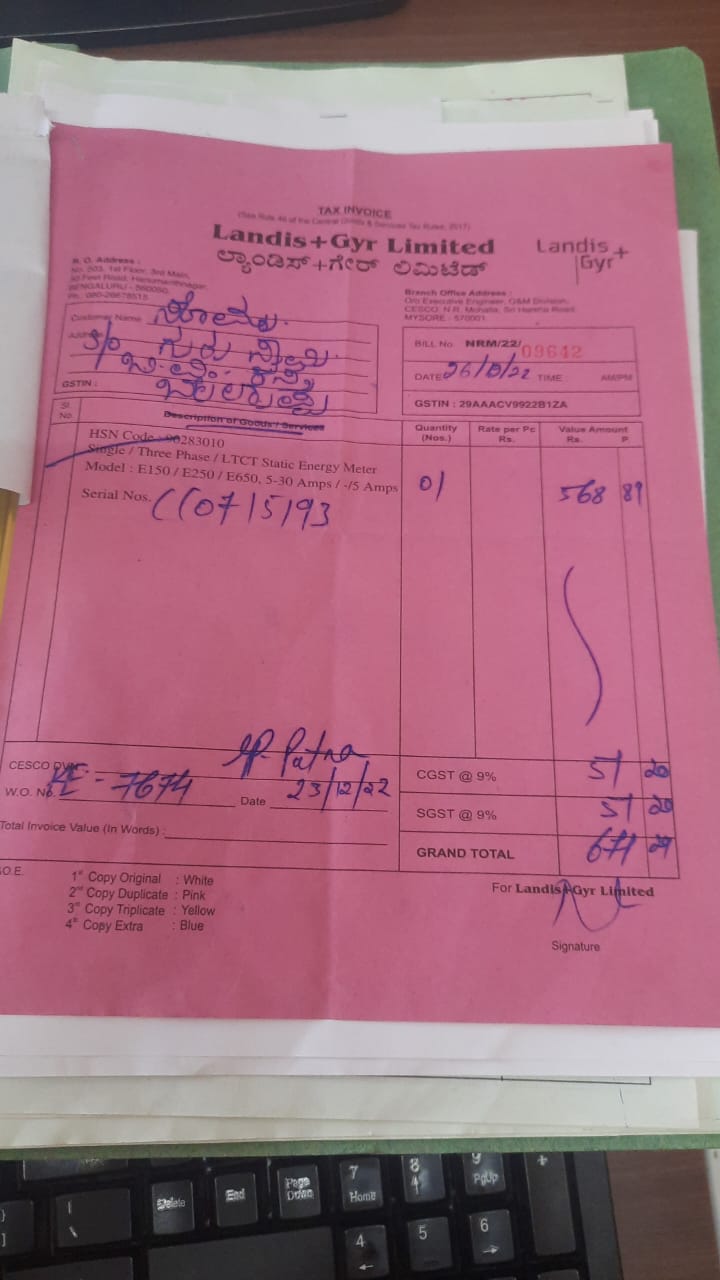 TAX INVOICE
(See Rule 46 of the Central Goods & Services Tax Rules, 2017)
Landis+Gyr Limited
ಲ್ಯಾಂಡಿಸ್+ಗೇರ್ ಲಿಮಿಟೆಡ್
Landis+
Gyr
R. O. Address :
No. 503, 1st Floor, 3rd Main,
50 Feet Road, Hanumanthnagar,
BENGALURU - 560050.
Branch Office Address :
O/o Executive Engineer, O&M Division,
CESCO, N.R. Mohalla, Sri Harsha Road
MYSORE - 570001.
Customer Name
Address
S/o
GSTIN :
BILL No. NRM/22/ 09642
DATE 22 TIME : AM/PM
GSTIN : 29AAACV9922B1ZA
Sl. No.
Description of Goods / Services
Quantity (Nos.)
Rate per Pc Rs.
Value Amount Rs. P
HSN Code : 90283010
Single / Three Phase / LTCT Static Energy Meter
Model : E150 / E250 / E650, 5-30 Amps / -/5 Amps
01 568 89
Serial Nos.
CESCO
W.O. No. - 7674
Date 23/12/22
CGST @ 9% 51 20
SGST @ 9% 51 20
Total Invoice Value (In Words) :
GRAND TOTAL 671 29
O.E.
1st Copy Original : White
2nd Copy Duplicate : Pink
3rd Copy Triplicate : Yellow
4th Copy Extra : Blue
For Landis+Gyr Limited
Signature
Delete
End
Page Down
7 Home
8
9 PgUp
+
4
5
6